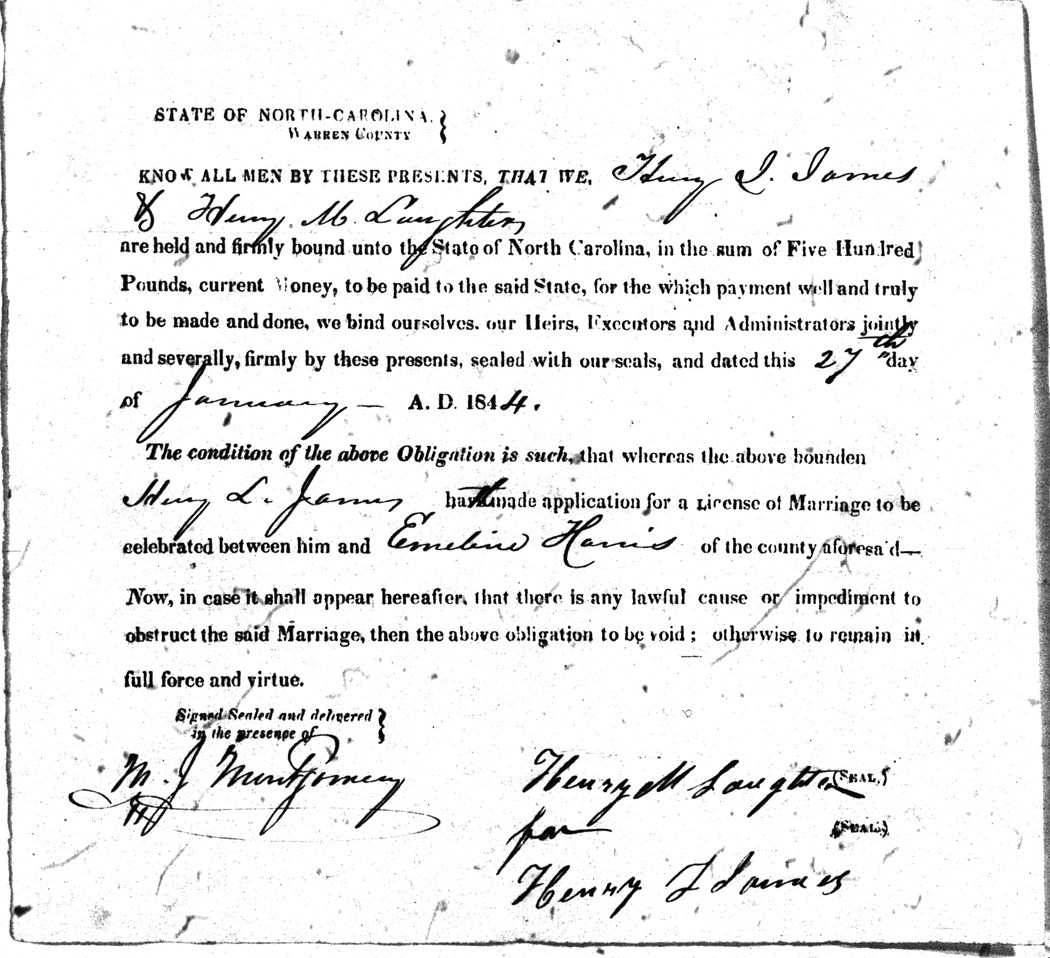 STATE OF NORTH-CAROLINA. }
WARREN COUNTY
KNOW ALL MEN BY THESE PRESENTS, THAT WE, Henry L. James
& Henry M. Laughter
are held and firmly bound unto the State of North Carolina, in the sum of Five Hundred
Pounds, current Money, to be paid to the said State, for the which payment well and truly
to be made and done, we bind ourselves. our Heirs, Executors and Administrators jointly
and severally, firmly by these presents, sealed with our seals, and dated this 27th day
of January — A. D. 1844.
The condition of the above Obligation is such, that whereas the above bounden
Henry L. James hath made application for a License of Marriage to be
celebrated between him and Emeline Harris of the county aforesa'd—
Now, in case it shall appear hereafter, that there is any lawful cause or impediment to
obstruct the said Marriage, then the above obligation to be void; otherwise to remain in
full force and virtue.
Signed Sealed and delivered }
in the presence of
M. J Montgomery
Henry M Laughter (SEAL.)
for (SEAL.)
Henry L James